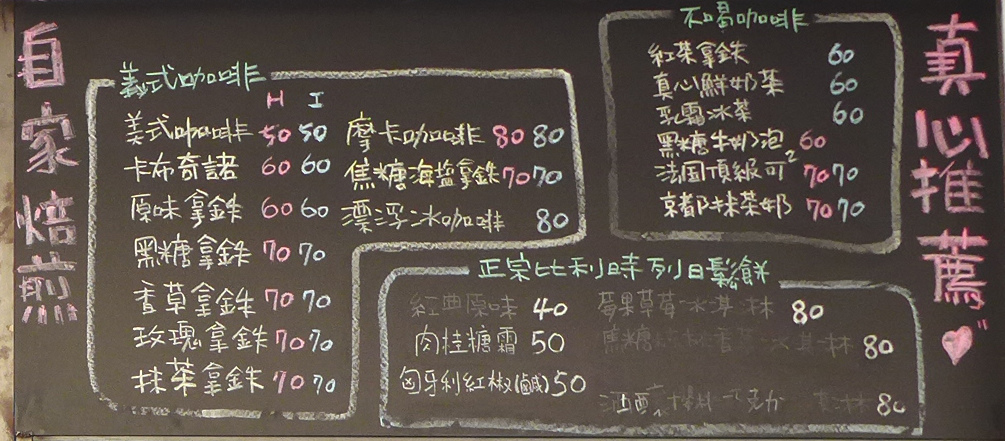 自家焙煎
美式咖啡
H I
美式咖啡 50 50
卡布奇諾 60 60
原味拿鉄 60 60
黑糖拿鉄 70 70
香草拿鉄 70 70
玫瑰拿鉄 70 70
抹茶拿鉄 70 70
摩卡咖啡 80 80
焦糖海盐拿鉄 70 70
漂浮冰咖啡 80
不喝咖啡
紅茶拿鉄 60
真心鮮奶茶 60
乳霜冰茶 60
黑糖牛奶泡 60
法国頂級可² 70 70
京都抹茶奶 70 70
正宗比利時列日鬆餅
紅典原味 40
肉桂糖霜 50
匈牙利紅椒(鹹) 50
莓果草莓冰淇淋 80
焦糖 香草冰淇淋 80
酒 80
真心推薦"♥